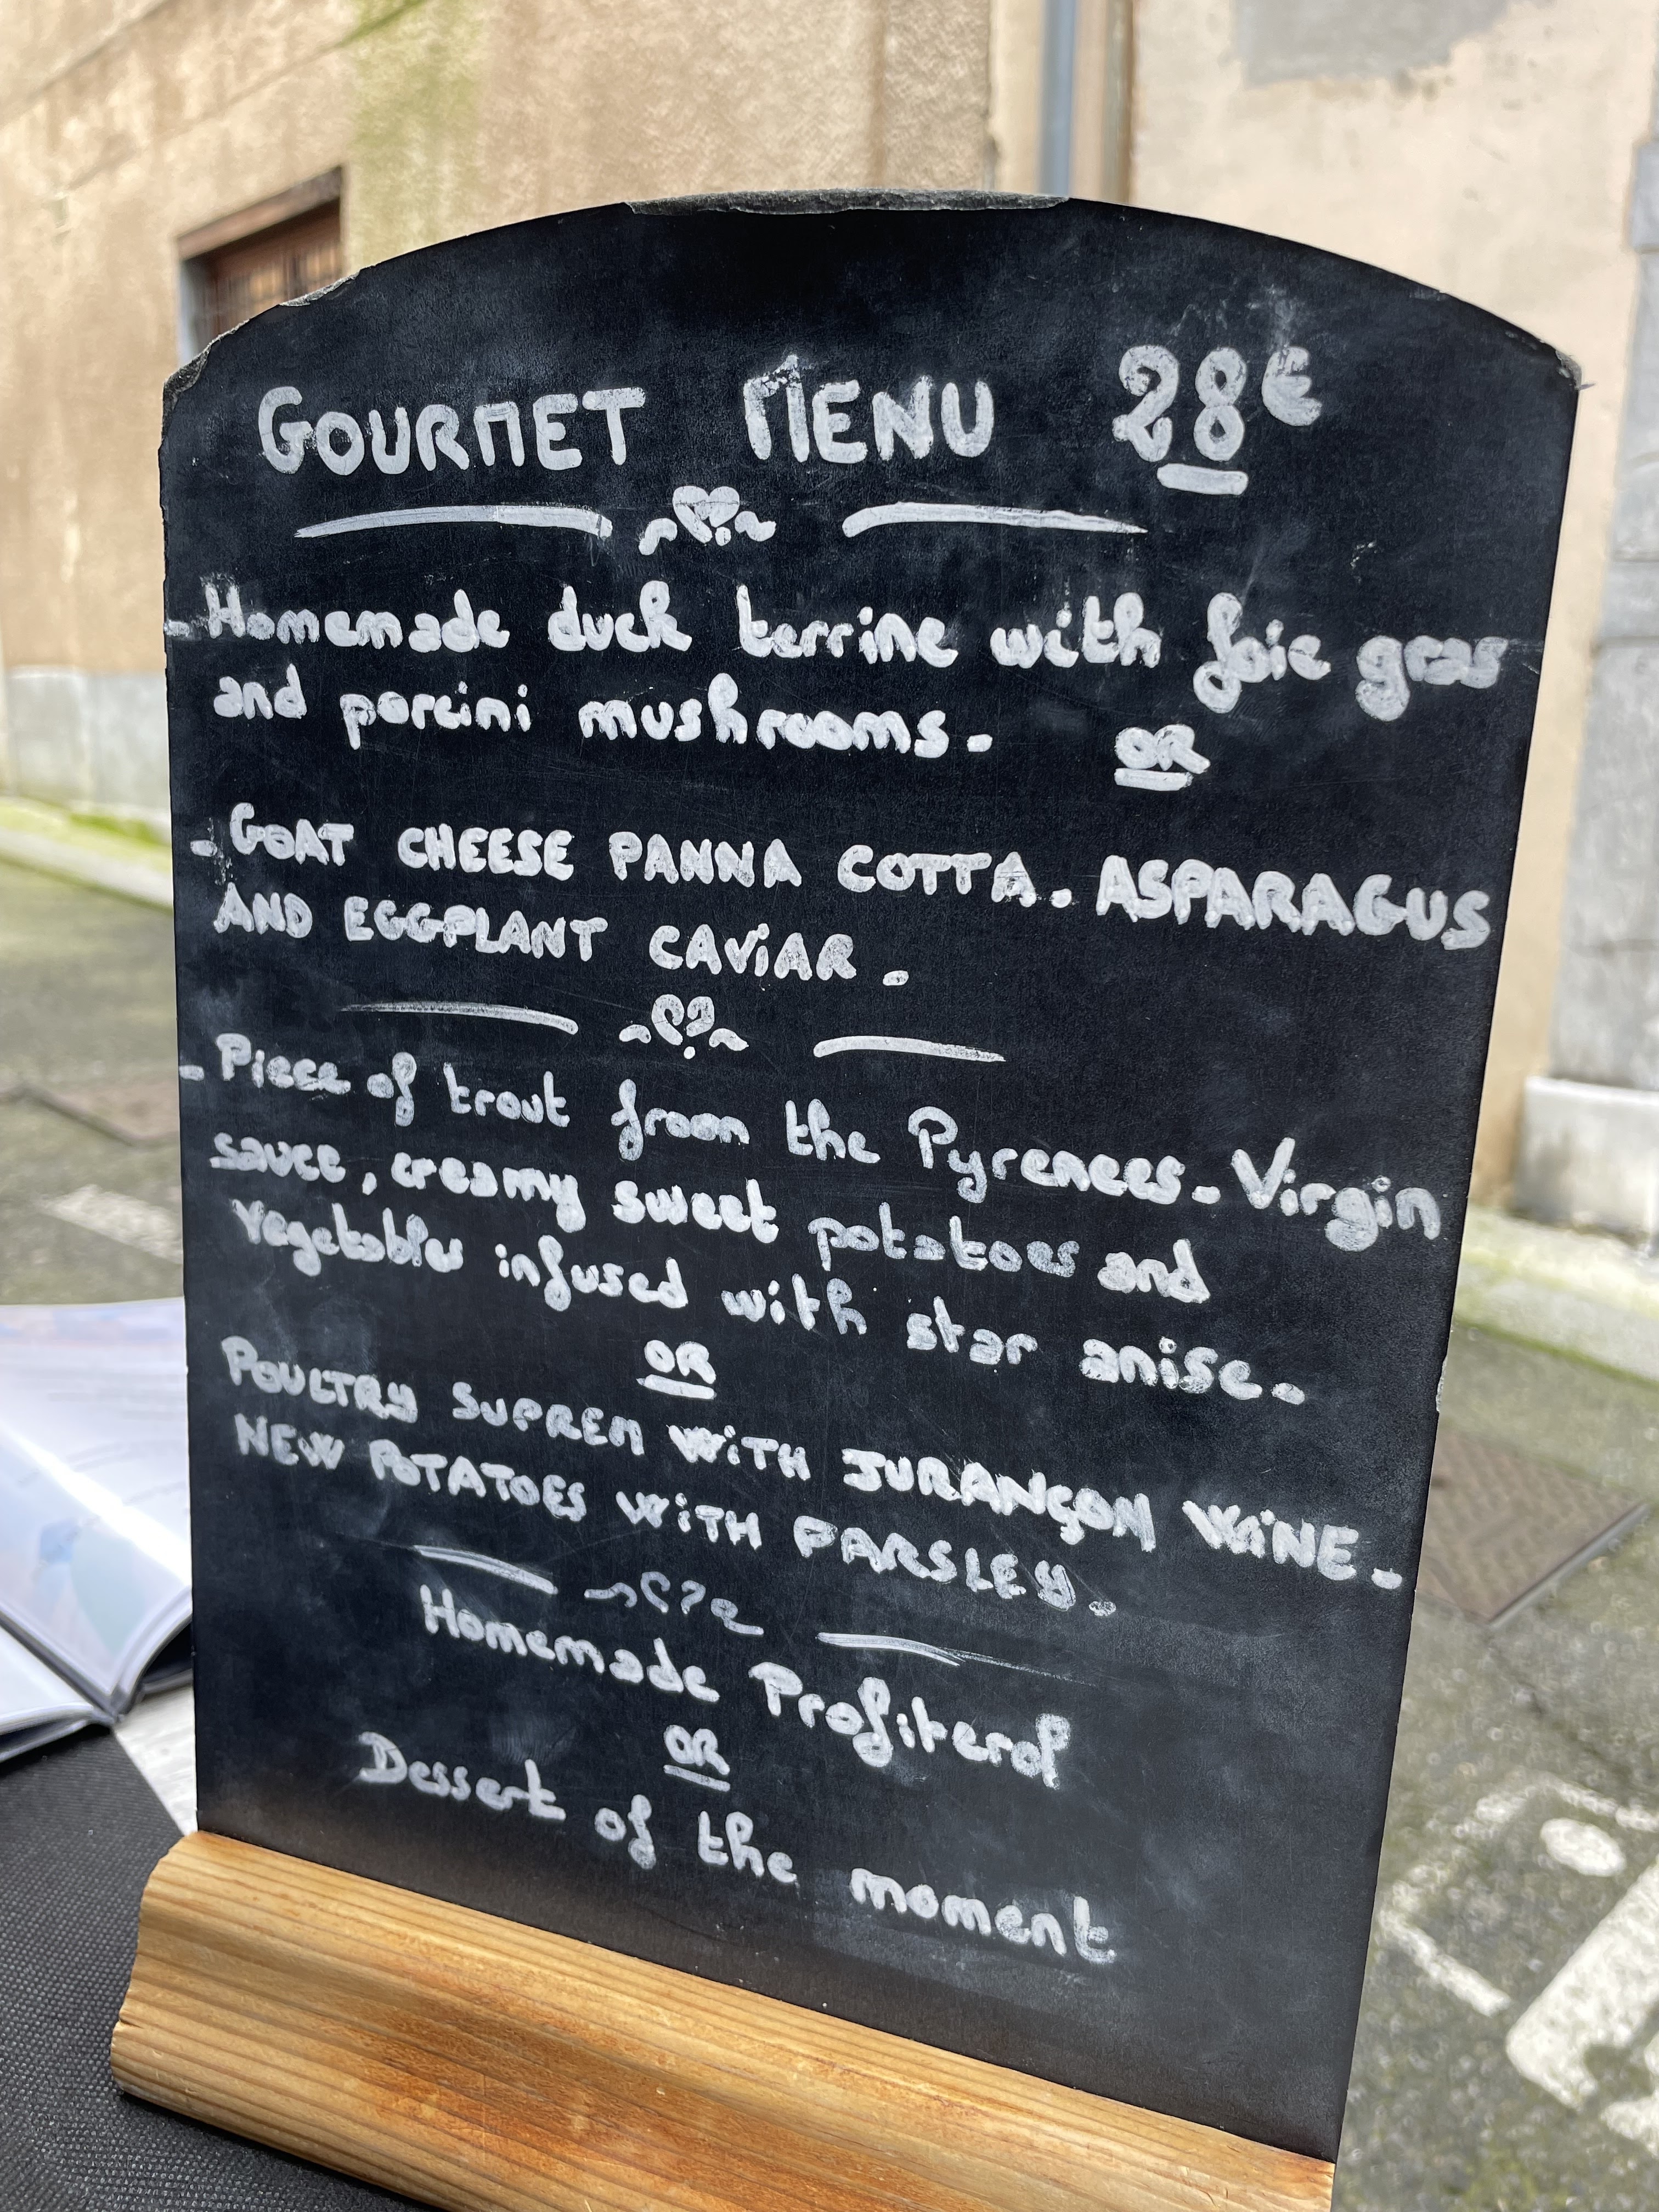 GOURMET MENU 28€
- Homemade duck terrine with foie gras
and porcini mushrooms. OR
- GOAT CHEESE PANNA COTTA. ASPARAGUS
AND EGGPLANT CAVIAR.
- Piece of trout from the Pyrenees. Virgin
sauce, creamy sweet potatoes and
vegetables infused with star anise.
OR
POULTRY SUPREM WITH JURANÇON WINE.
NEW POTATOES WITH PARSLEY.
Homemade Profiterol
OR
Dessert of the moment